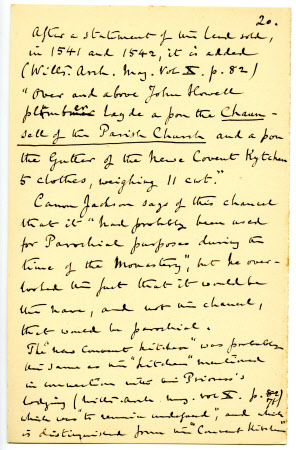 20.
After a statement of the lead sold,
in 1541 and 1542, it is added
(Wilts. Arch. Mag. Vol X. p. 82)
"Over and above John Howell
Layde a pon the Chaun-
sell of the Parish Church and a pon
the Gutter of the newe Covent Kytchen
5 clothes, weighing 11 cwt."
Canon Jackson says of this chancel
that it "had probably been used
for Parochial purposes during the
time of the Monastery", but he over-
looked the fact that it would be
the nave, and not the chancel,
that would be parochial.
The "new Convent kitchen" was probably
the same as the "kitchen" mentioned
in connection with the Prioress's
lodging (Wilts. Arch. Mag. Vol X. p.
which was "to remain undefaced", and which
is distinguished from the "Convent Kitchen"